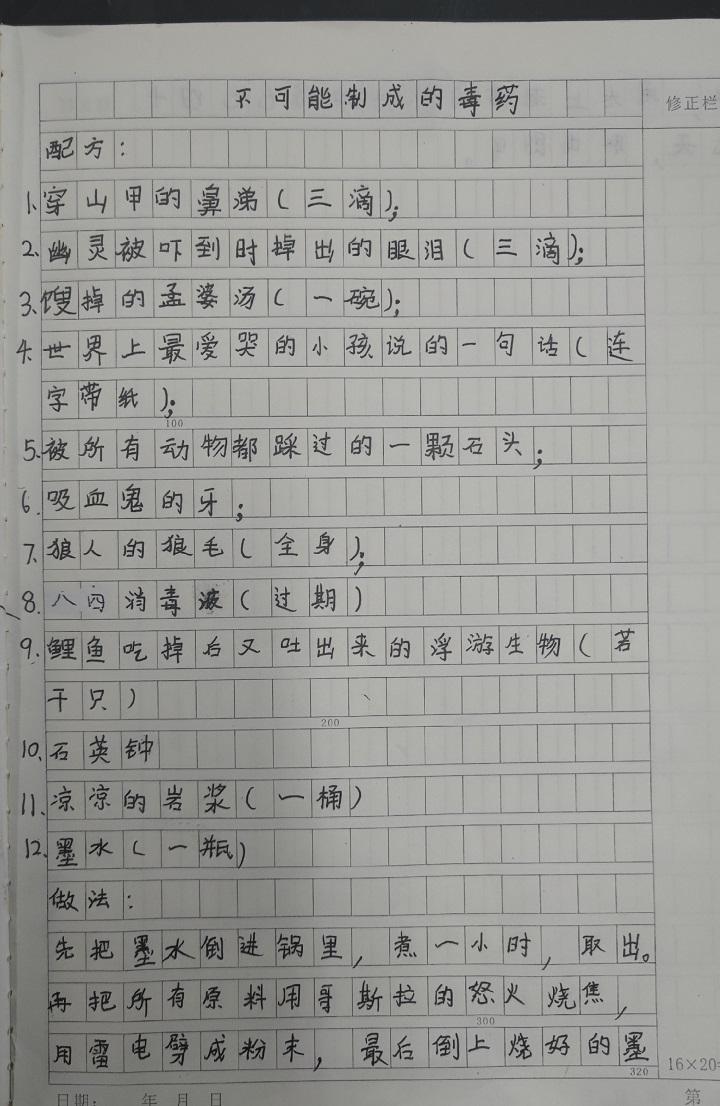 不可能制成的毒药
修正栏
配方：
1.穿山甲的鼻涕（三滴）；
2.幽灵被吓到时掉出的眼泪（三滴）；
3.馊掉的孟婆汤（一碗）；
4.世界上最爱哭的小孩说的一句话（连
字带纸）；
100
5.被所有动物都踩过的一颗石头；
6.吸血鬼的牙；
7.狼人的狼毛（全身）；
8.八四消毒液（过期）
9.鲤鱼吃掉后又吐出来的浮游生物（若
干只）
200
10.石英钟
11.凉凉的岩浆（一桶）
12.墨水（一瓶）
做法：
先把墨水倒进锅里，煮一小时，取出。
再把所有原料用哥斯拉的怒火烧焦，
300
用雷电劈成粉末，最后倒上烧好的墨
320
16×20=
日期： 年 月 日
第